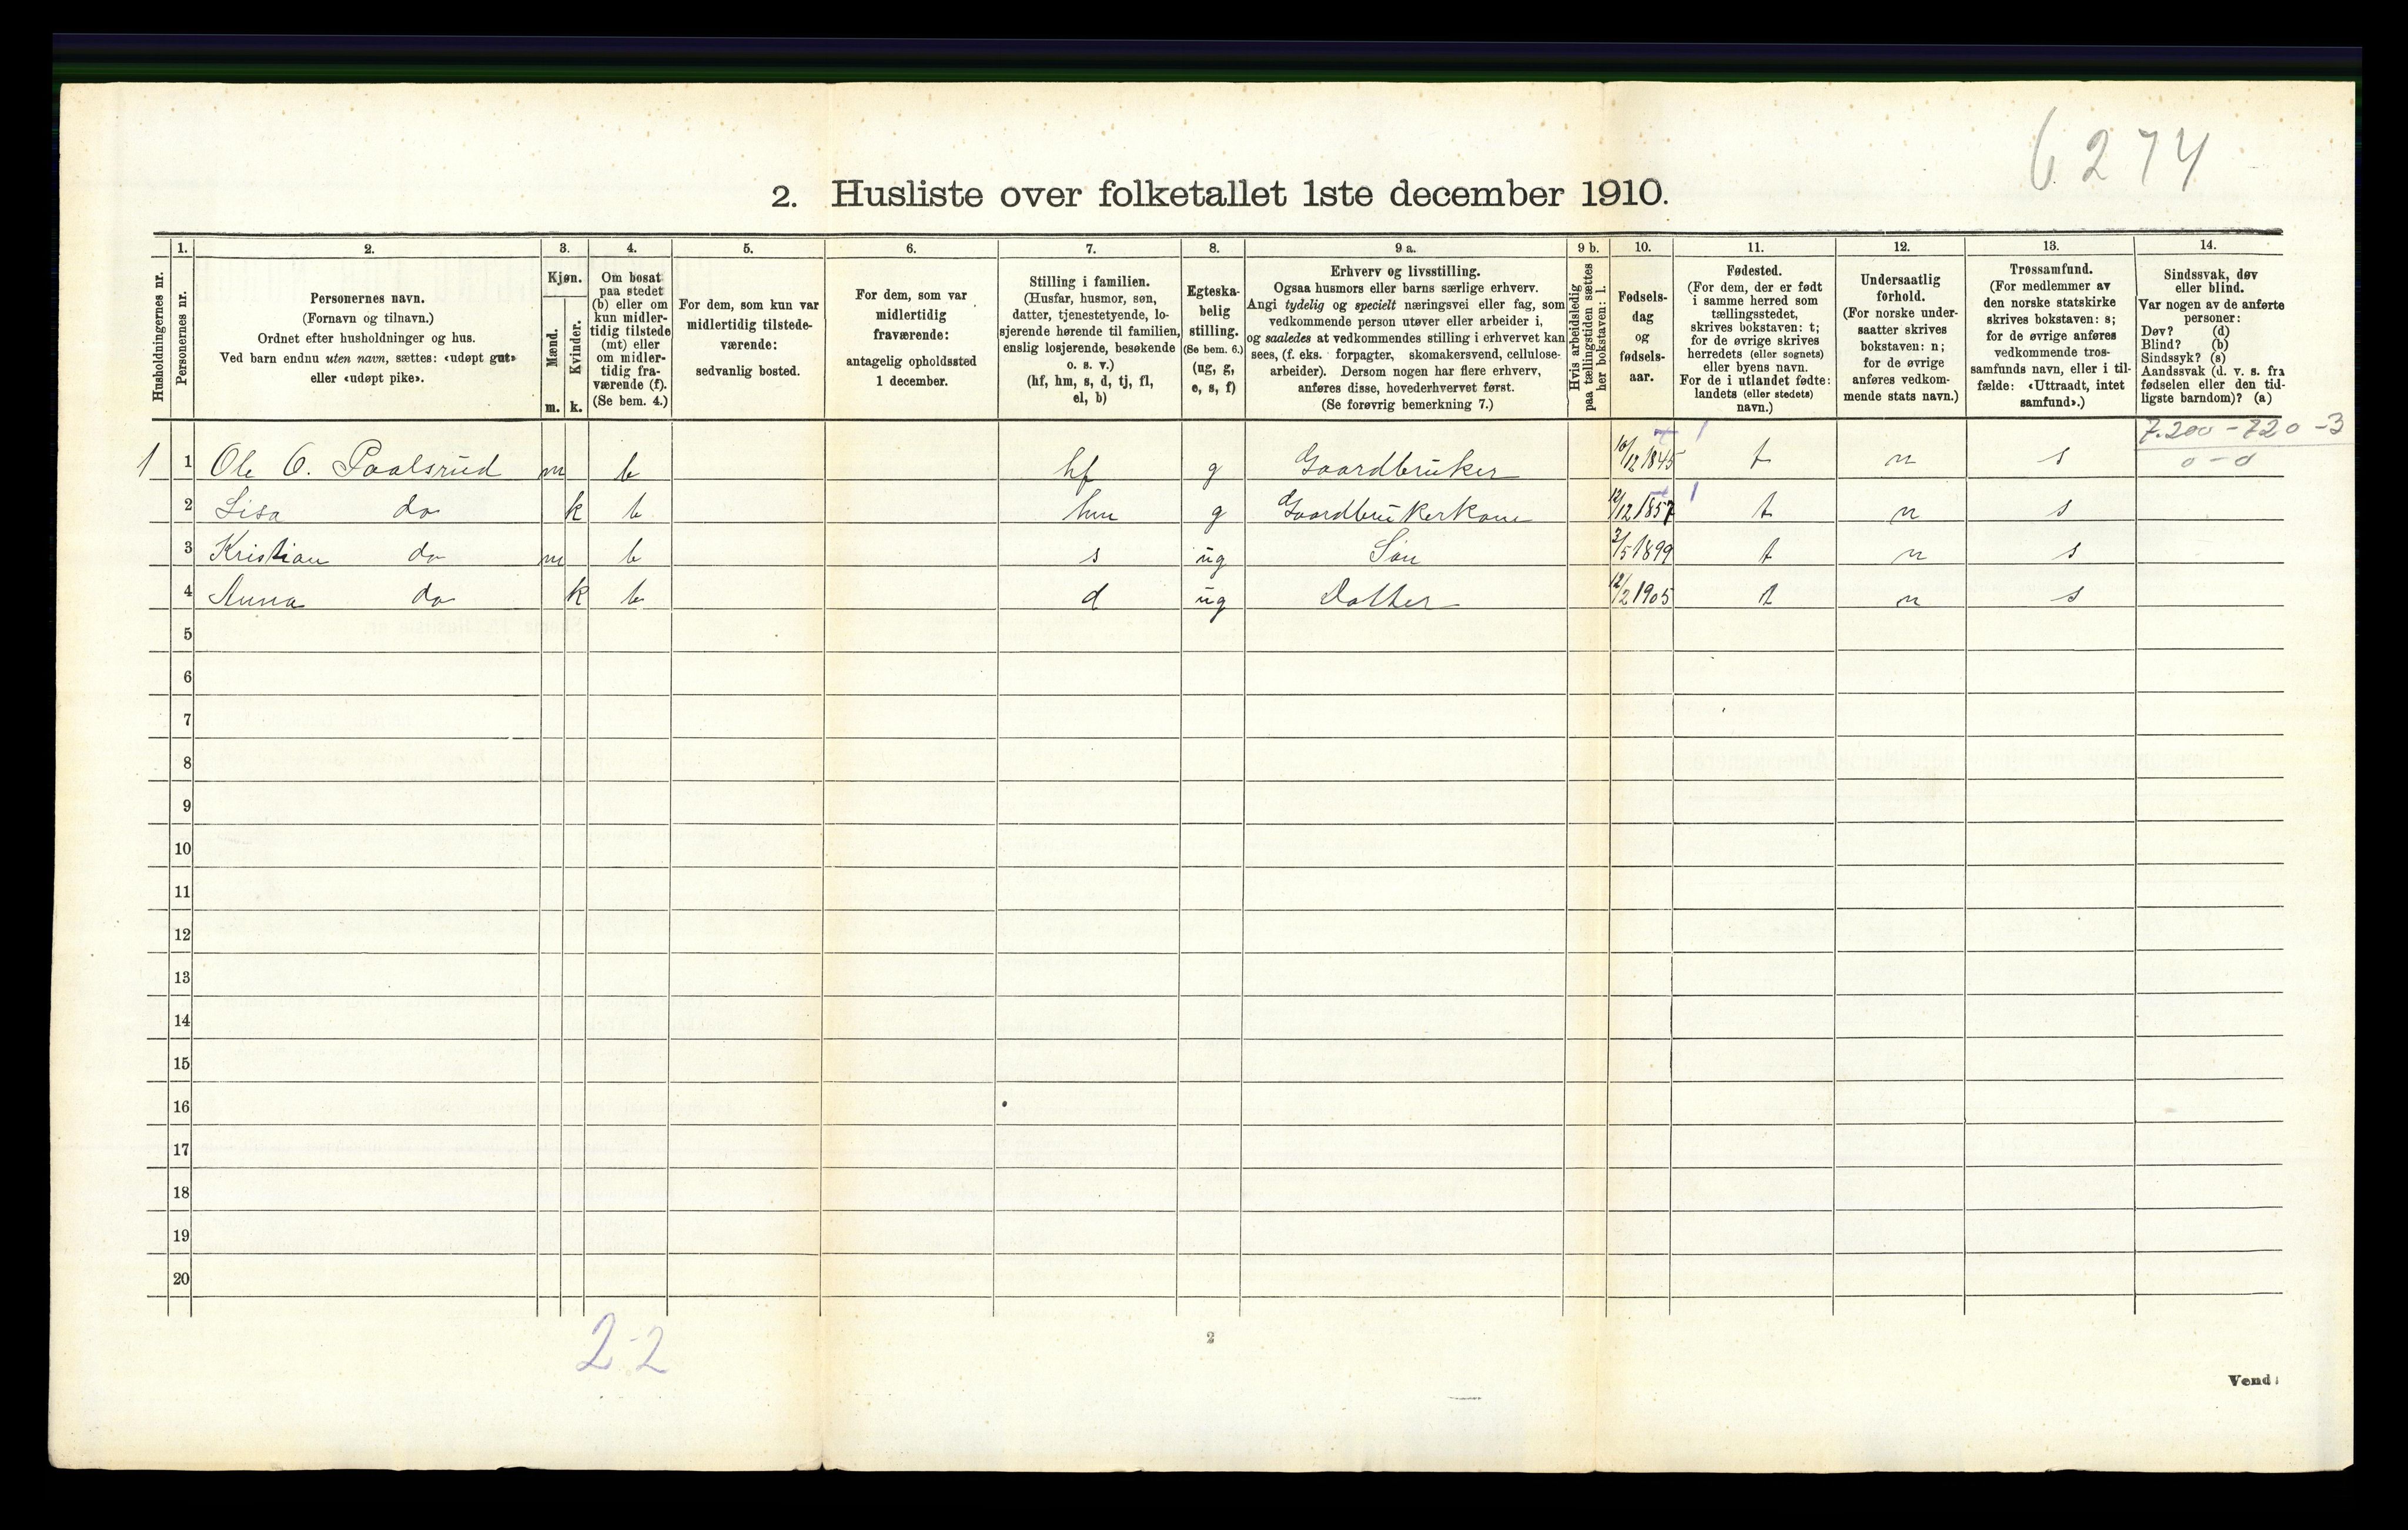 6274
2. Husliste over folketallet 1ste december 1910.
Husholdningernes nr.
1. Personernes nr.
2. Personernes navn.
(Fornavn og tilnavn.)
Ordnet efter husholdninger og hus.
Ved barn endnu uten navn, sættes: «udøpt gut»
eller «udøpt pike».
3. Kjøn.
Mænd. m.
Kvinder. k.
4. Om bosat
paa stedet
(b) eller om
kun midler-
tidig tilstede
(mt) eller
om midler-
tidig fra-
værende (f).
(Se bem. 4.)
5. For dem, som kun var
midlertidig tilstede-
værende:
sedvanlig bosted.
6. For dem, som var
midlertidig
fraværende:
antagelig opholdssted
1 december.
7. Stilling i familien.
(Husfar, husmor, søn,
datter, tjenestetyende, lo-
sjerende hørende til familien,
enslig losjerende, besøkende
o. s. v.)
(hf, hm, s, d, tj, fl,
el, b)
8. Egteska-
belig
stilling.
(Se bem. 6.)
(ug, g,
e, s, f)
9 a. Erhverv og livsstilling.
Ogsaa husmors eller barns særlige erhverv.
Angi tydelig og specielt næringsvei eller fag, som
vedkommende person utøver eller arbeider i,
og saaledes at vedkommendes stilling i erhvervet kan
sees, (f. eks. forpagter, skomakersvend, cellulose-
arbeider). Dersom nogen har flere erhverv,
anføres disse, hovederhvervet først.
(Se forøvrig bemerkning 7.)
9 b. Hvis arbeidsledig
paa tællingstiden sættes
her bokstaven: l.
10. Fødsels-
dag
og
fødsels-
aar.
11. Fødested.
(For dem, der er født
i samme herred som
tællingsstedet,
skrives bokstaven: t;
for de øvrige skrives
herredets (eller sognets)
eller byens navn.
For de i utlandet fødte:
landets (eller stedets)
navn.)
12. Undersaatlig
forhold.
(For norske under-
saatter skrives
bokstaven: n;
for de øvrige
anføres vedkom-
mende stats navn.)
13. Trossamfund.
(For medlemmer av
den norske statskirke
skrives bokstaven: s;
for de øvrige anføres
vedkommende tros-
samfunds navn, eller i til-
fælde: «Uttraadt, intet
samfund».)
14. Sindssvak, døv
eller blind.
Var nogen av de anførte
personer:
Døv? (d)
Blind? (b)
Sindssyk? (s)
Aandssvak (d. v. s. fra
fødselen eller den tid-
ligste barndom)? (a)
7.200 - 720 - 3
0 - 0
1 1 Ole O. Paalsrud m b hf g Gaardbruker 10/12 1845 t n s
2 Lisa do k b hm g Gaardbrukerkone 12/12 1857 t n s
3 Kristian do m b s ug Søn 3/5 1899 t n s
4 Anna do k b d ug Datter 12/2 1905 t n s
5
6
7
8
9
10
11
12
13
14
15
16
17
18
19
20
2-2
2
Vend!